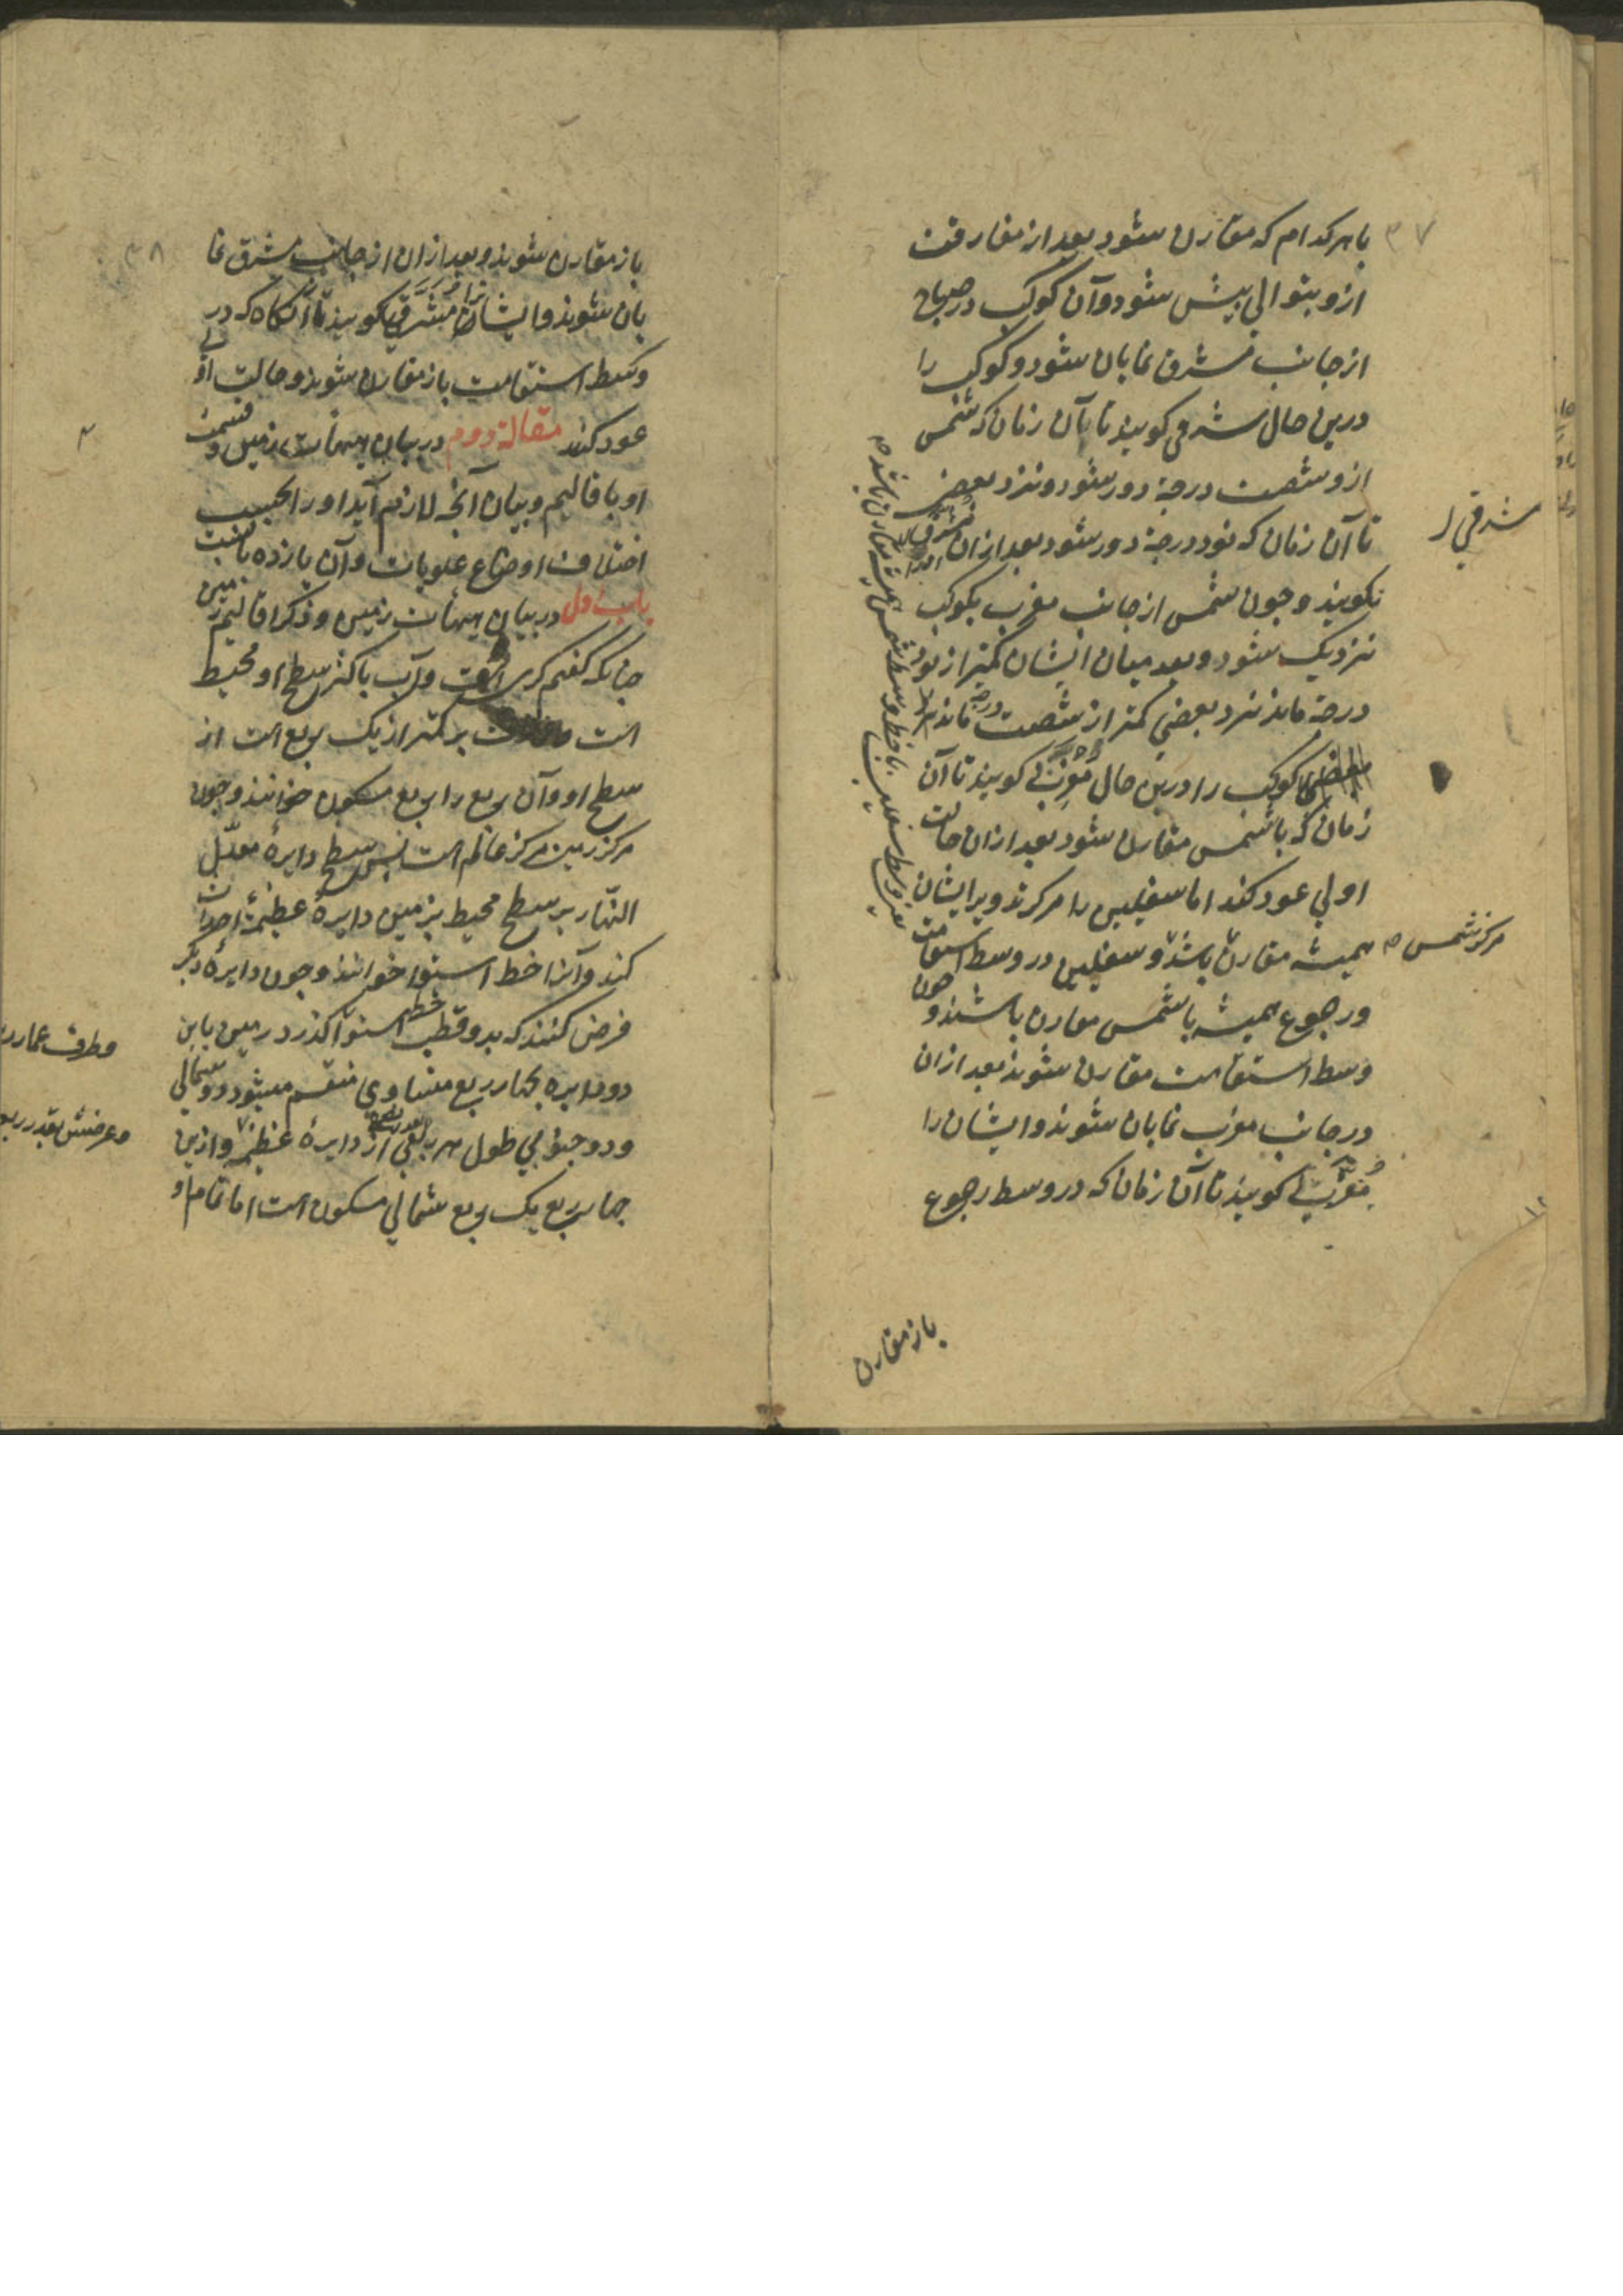 ۳۷
با هر کدام که مقارن شود بعد از مفارقت
ازو بتوالی پیش شود و آن کوکب در صباح
از جانب مشرق نمایان شود و کوکب را
درین حال شرقی کویند تا بآن زمان که شمس
ازو شصت درجه دور شود و نزد بعضی
تا آن زمان که نود درجه دور شود بعد از آن
شرقی
نکویند و چون شمس از جانب مغرب بکوکب
نزدیک شود و بعد میان ایشان کمتر از نود
درجه ماند نزد بعضی کمتر از شصت درجه ماند
کوکب را درین حال مغربی کویند تا آن
زمان که با شمس مقارن شود بعد از آن حالت
اولی عود کند اما سفلیین را مرکز تدویر ایشان
همیشه مقارن باشد و سفلیین در وسط استقامت
مرکز شمس
و رجوع همیشه با شمس مقارن باشند و چون
وسط استقامت مقارن شوند بعد از آن
در جانب مغرب نمایان شوند و ایشان را
مغربی کویند تا آن زمان که در وسط رجوع
باز مقارن
۳۸
باز مقارن شوند و بعد از آن از جانب مشرق نما
یان شوند و ایشان را مشرقی کویند تا آنکاه که در
وسط استقامت باز مقارن شوند و حالت اولی
عود کند مقاله دوم در بیان هیئات زمین و قسمت
او باقالیم و بیان آنچه لازم آید او را بحسب
اختلاف اوضاع علویات و آن یازده بابست
باب اول در بیان هیئات زمین و ذکر اقالیم زمین
چنانکه کفتم کری است و آب باکثر سطح او محیط
است بر کمتر از یک ربع است از
سطح او و آن ربع را ربع مسکون خوانند و چون
مرکز زمین مرکز عالم است پس سطح دایره معدل
النهار بر سطح محیط بزمین دایره عظیمه احداث
کند و آنرا خط استوا خوانند و چون دایره دیکر
فرض کنند که بدو قطب خط استوا کذرد زمین باین
دو دایره بچهار ربع متساوی منقسم میشود دو شمالی
و دو جنوبی طول هر ربعی از دایره عظیمه و ازین
چهار ربع یک ربع شمالی مسکون است اما تمام او
و طرف عمارت
و عرضش بقدر ربع